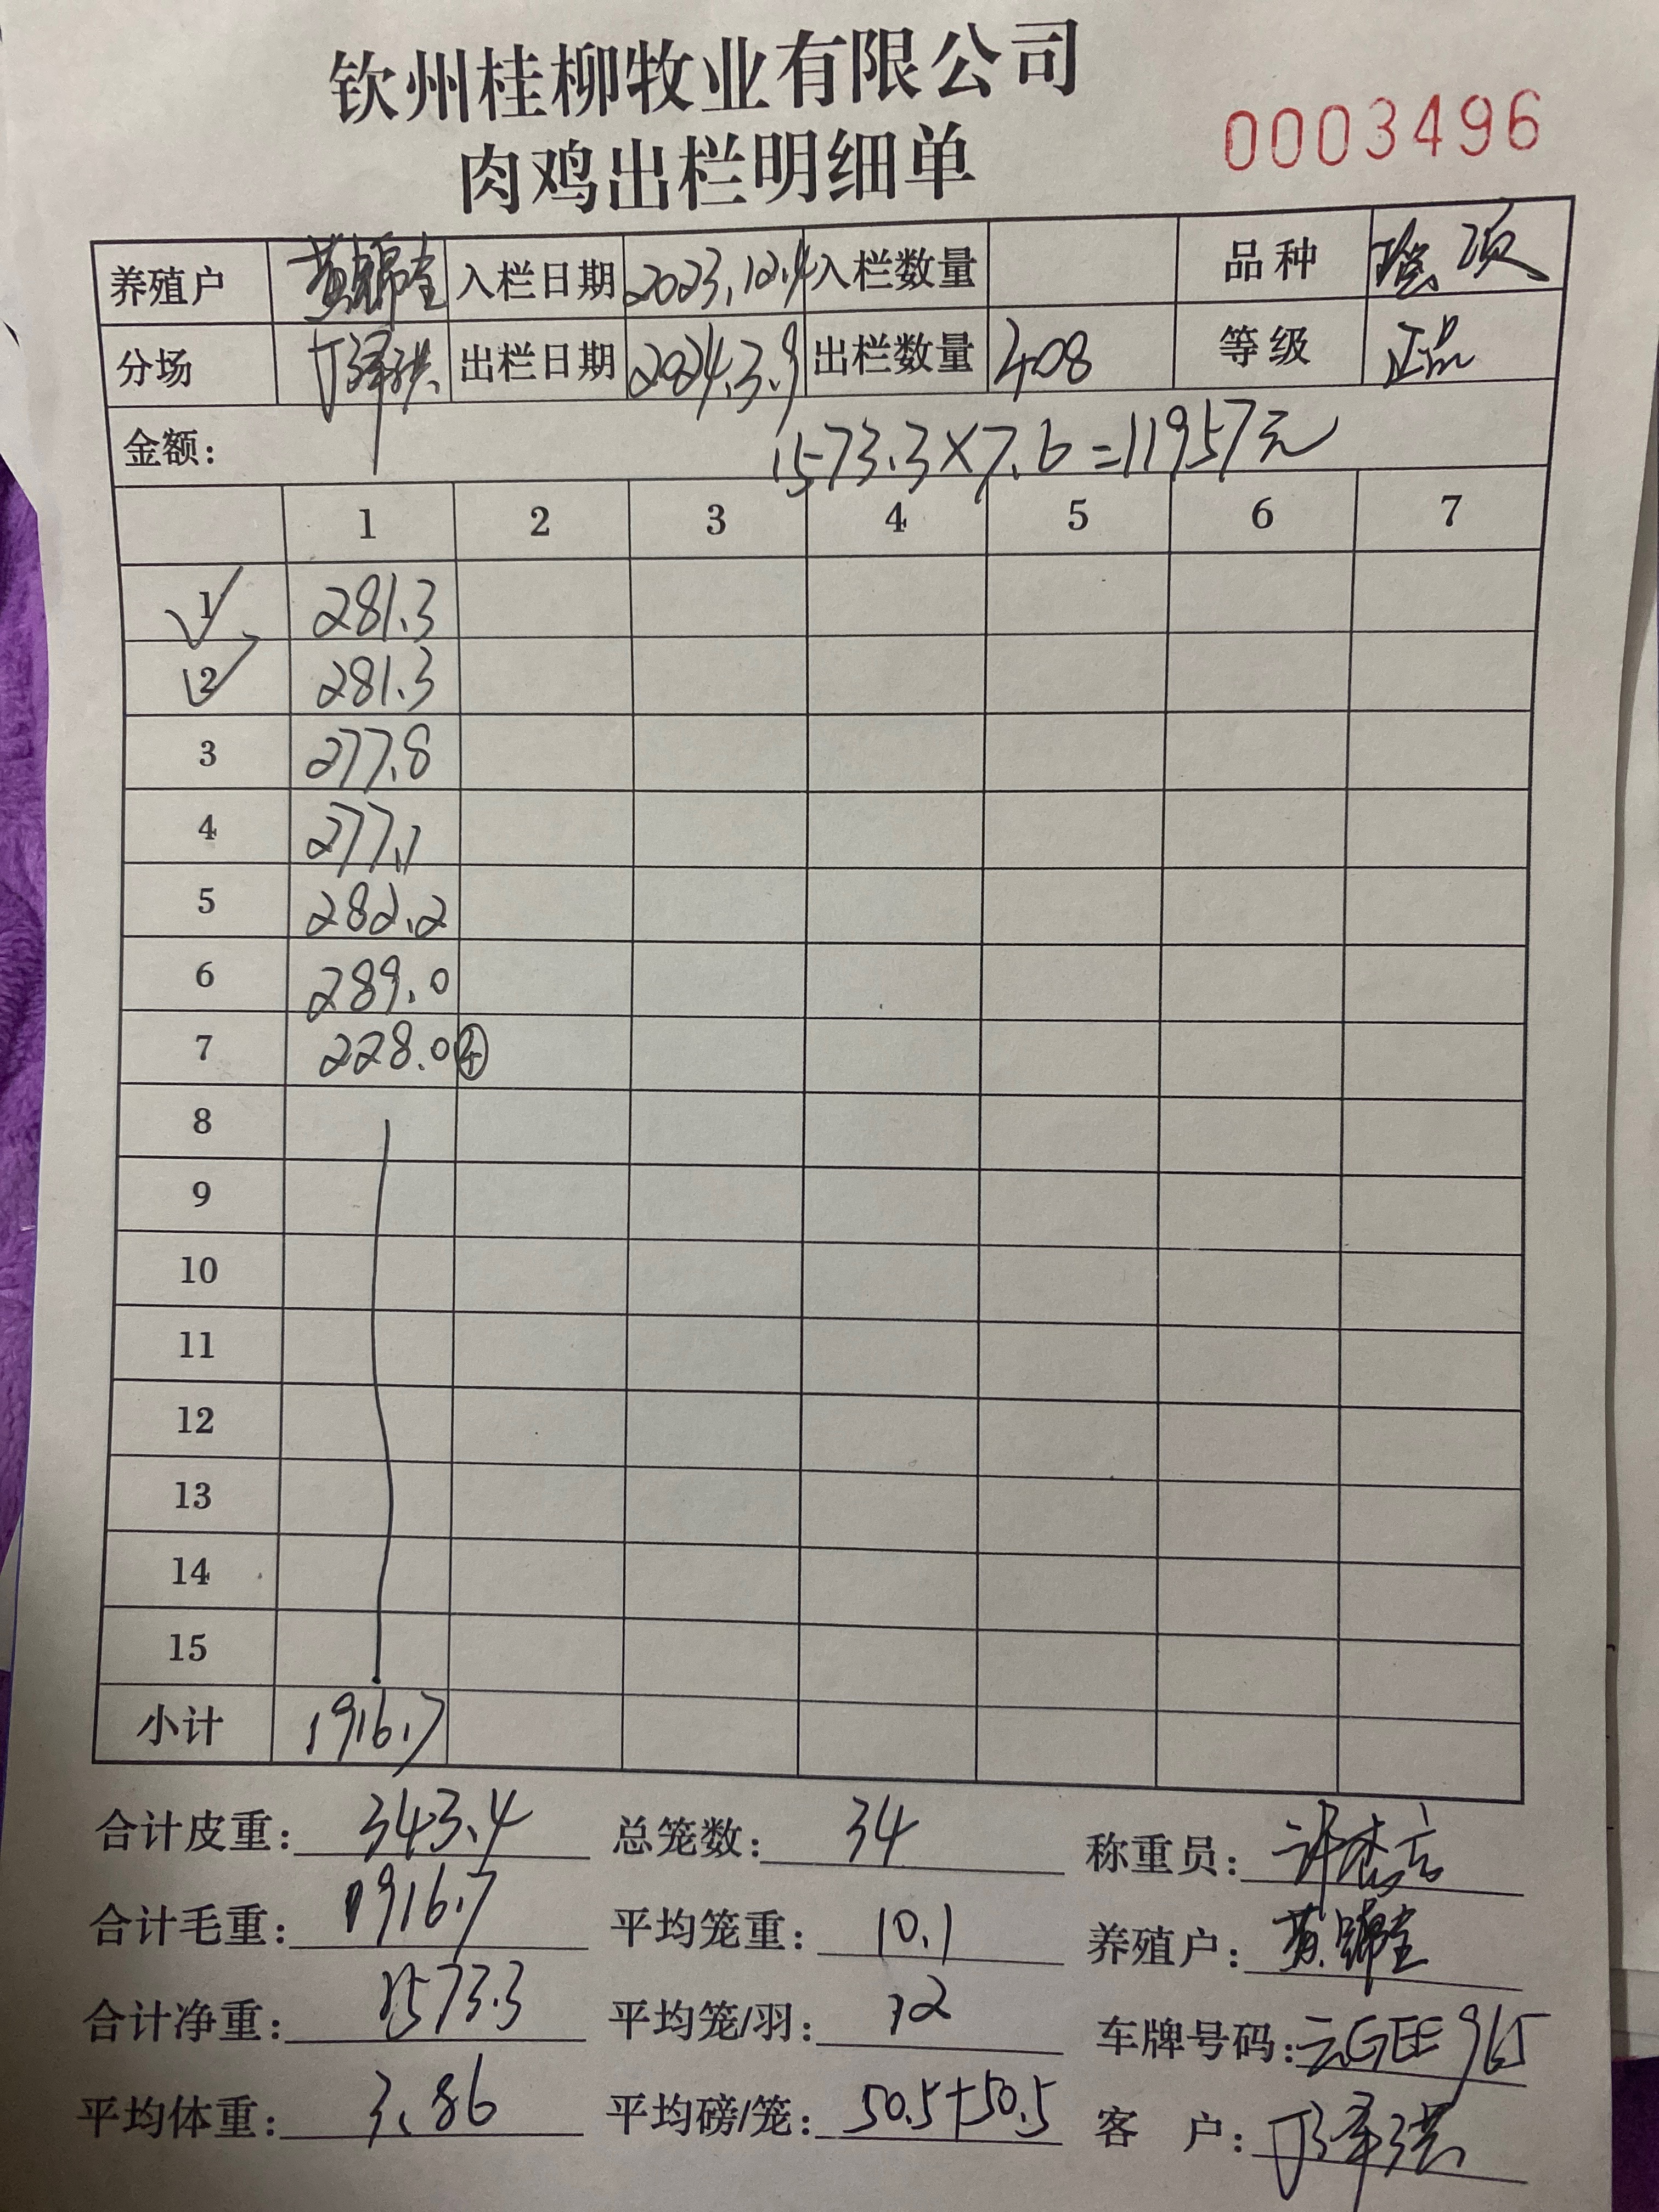 钦州桂柳牧业有限公司
肉鸡出栏明细单
0003496
养殖户 黄锦奎 入栏日期 2023.12.4 入栏数量 品种 瑶项
分场 丁泽洪 出栏日期 2024.3.9 出栏数量 408 等级 正品
金额: 1573.3×7.6=11957元
1 2 3 4 5 6 7
1 281.3
2 281.3
3 277.8
4 277.1
5 282.2
6 289.0
7 228.0 ④
8
9
10
11
12
13
14
15
小计 1916.7
合计皮重: 343.4 总笼数: 34 称重员:
合计毛重: 1916.7 平均笼重: 10.1 养殖户: 黄锦奎
合计净重: 1573.3 平均笼/羽: 12 车牌号码: 云GEE965
平均体重: 3.86 平均磅/笼: 50.5+50.5 客 户: 丁泽洪